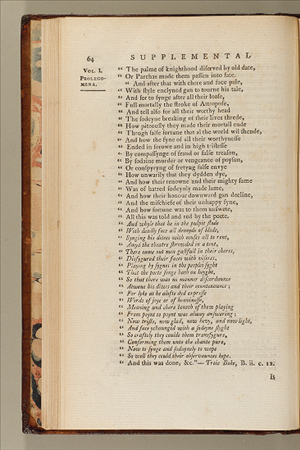 64 SUPPLEMENTAL
VOL. I.
PROLEGO-
MENA.
" The palme of knighthood diserved by old date,
" Or Parchas made them passen into fate.
" And after that with chere and face pale,
" With style enclyned gan to tourne his tale,
" And for to synge after all their losse,
" Full mortally the stroke of Attropose,
" And tell also for all their worthy head
" The sodeyne breaking of their lives threde,
" How piteously they made their mortall ende
" Through false fortune that al the world will shende,
" And how the fyne of all their worthynesse
" Ended in sorowe and in high tristesse
" By compassynge of fraud or false treason,
" By sodaine murdor or vengeance of poyson,
" Or conspyryng of fretyng false envye
" How unwarily that they dydden dye,
" And how their renowne and their mighty fame
" Was of hatred sodeynly made lame,
" And how their honour downward gan decline,
" And the mischiefe of their unhappy fyne,
" And how fortune was to them unswete,
" All this was told and red by the poete.
" And whyle that he in the pulpit stode
" With deadly face all devoyde of blode,
" Synging his dittees with muses all to rent,
" Amyd the theatre shrowded in a tent,
" There came out men gastfull in their cheres,
" Disfigured their faces with viseres,
" Playing by signes in the peoples sight
" That the poete songe hath on height,
" So that there was no manner discordaunce
" Atwene his ditees and their countenaunce;
" For lyke as he alofte dyd expresse
" Words of joye or of heavinesse,
" Meaning and chere beneth of them playing
" From poynt to poynt was alway answering;
" Now trist, now glad, now hevy, and now light,
" And face ychaunged with a sodeyne sight
" So craftely they coulde them transfygure,
" Conforming them unto the chante pure,
" Now to synge and sodeynely to wepe
" So well they could their observaunces kepe.
" And this was done, &c."— Troie Boke, B. ii. c. 12.
It